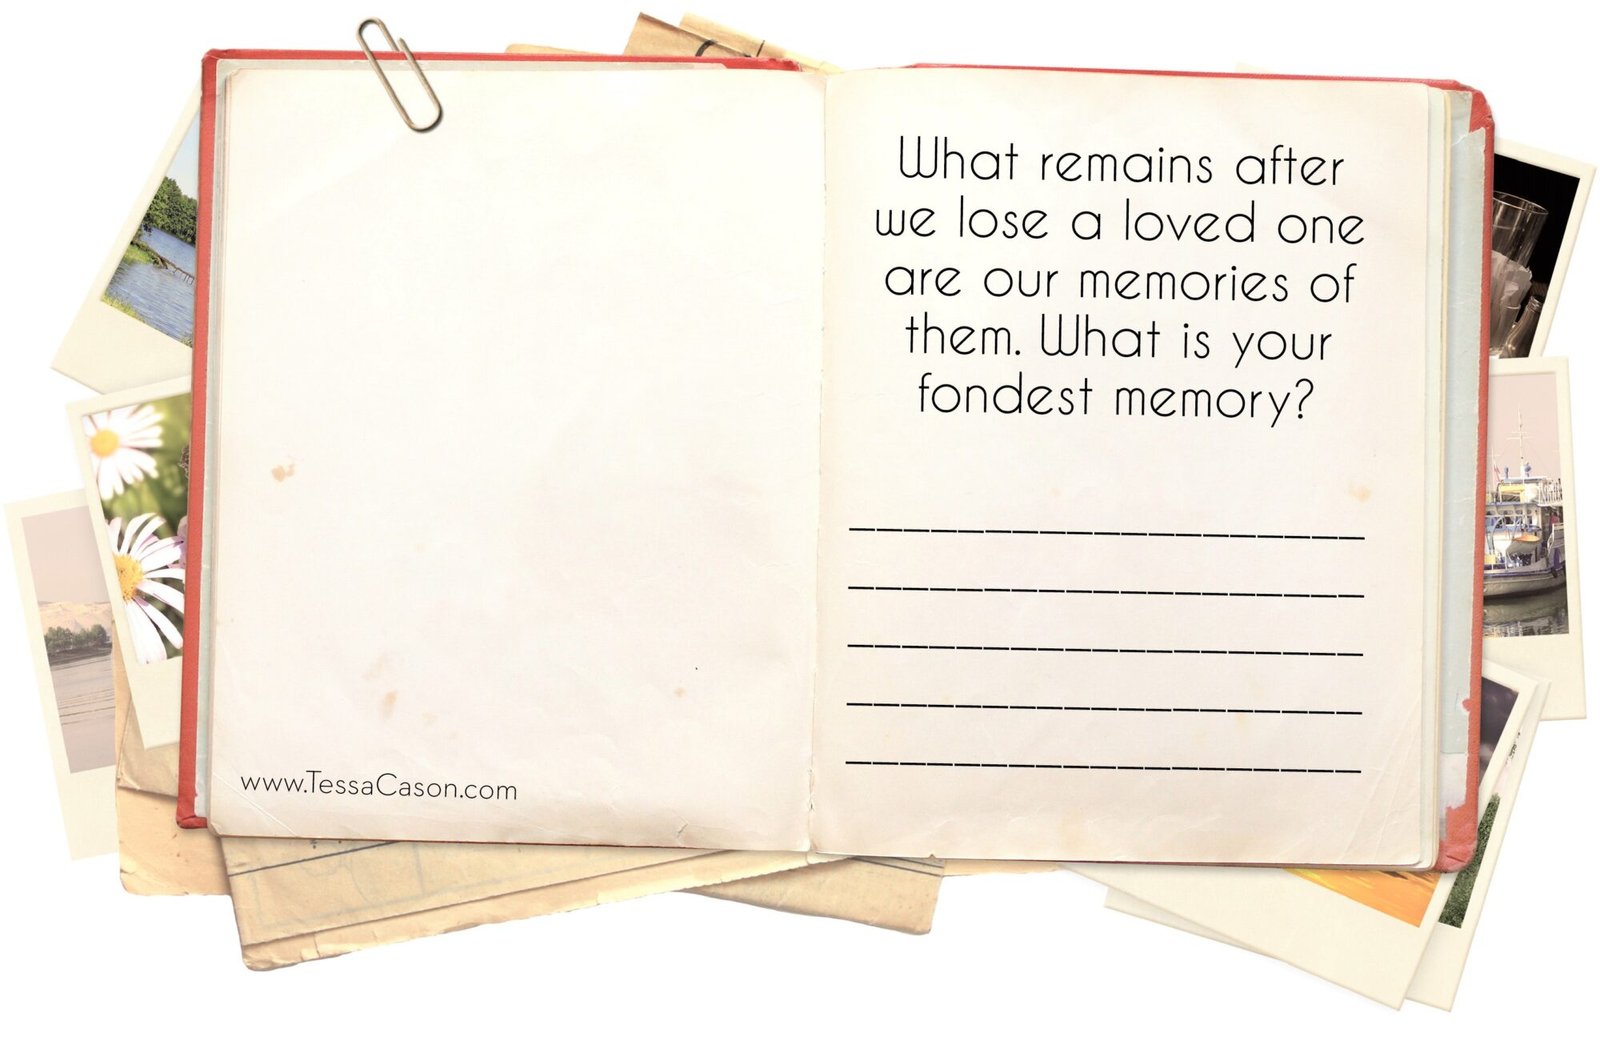 What remains after
we lose a loved one
are our memories of
them. What is your
fondest memory?
www.TessaCason.com